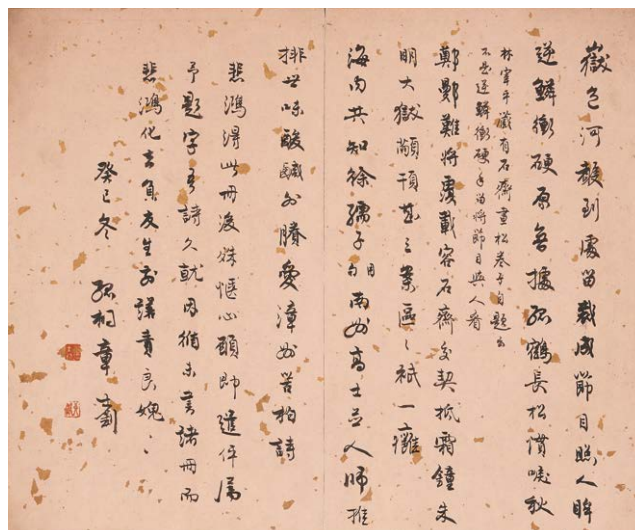 嶽色河聲到處留裁成節目照人眸
逆鱗衝硬原無據孤鶴長松慣唳秋
林宰平藏有石齋畫松卷子自題云
不是逆鱗衝硬手留將節目與人看
鄭鄤難將覆載容石齋交契抵霜鍾朱
明大獄顢頇甚三案區區祇一癰
海內共知徐孺子因勾南州高士與人師推
排世味酸鹹外賸愛漳州苦柏詩
悲鴻得此冊後殊愜心頤即進伻屬
予題字吾詩久就因循未書諸冊而
悲鴻化去負友生前諾責良媿媿
癸巳冬 孤桐章士釗